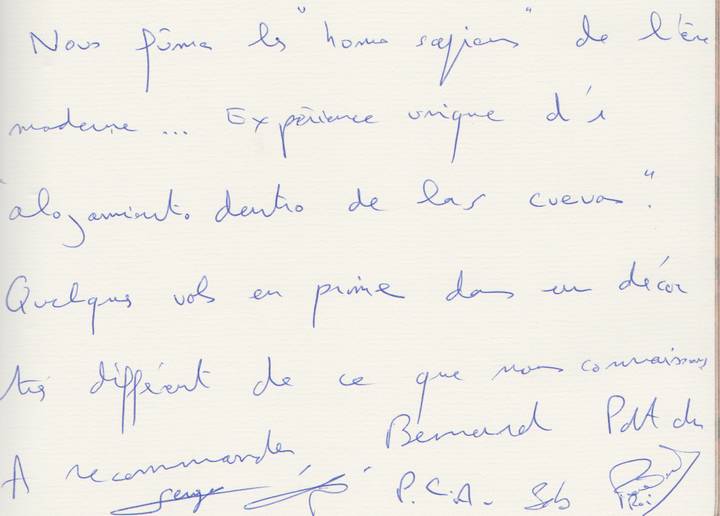 Nous fûmes les "homo sapiens" de l'ère
moderne ... Expérience unique d'
"alojamiento dentro de las cuevas".
Quelques vols en prime dans un décor
très différent de ce que nous connaissons
A recommander Bernard Pdt du
Serge P.C.A. Seb